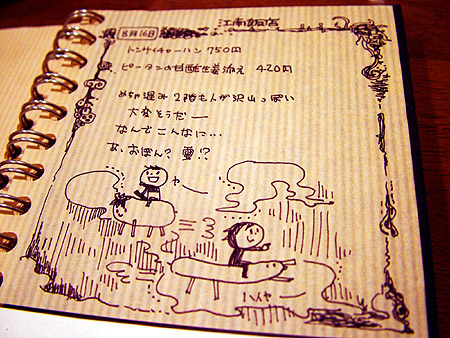 江南飯店
8月16日
トンサイチャーハン 750円
ピータンの甘酢生姜添え 420円
めちゃ混み 2階も人が沢山っぽい
大変そうだー
なんでこんなに…
あ、おぼん?
ヤー
ハイヤー